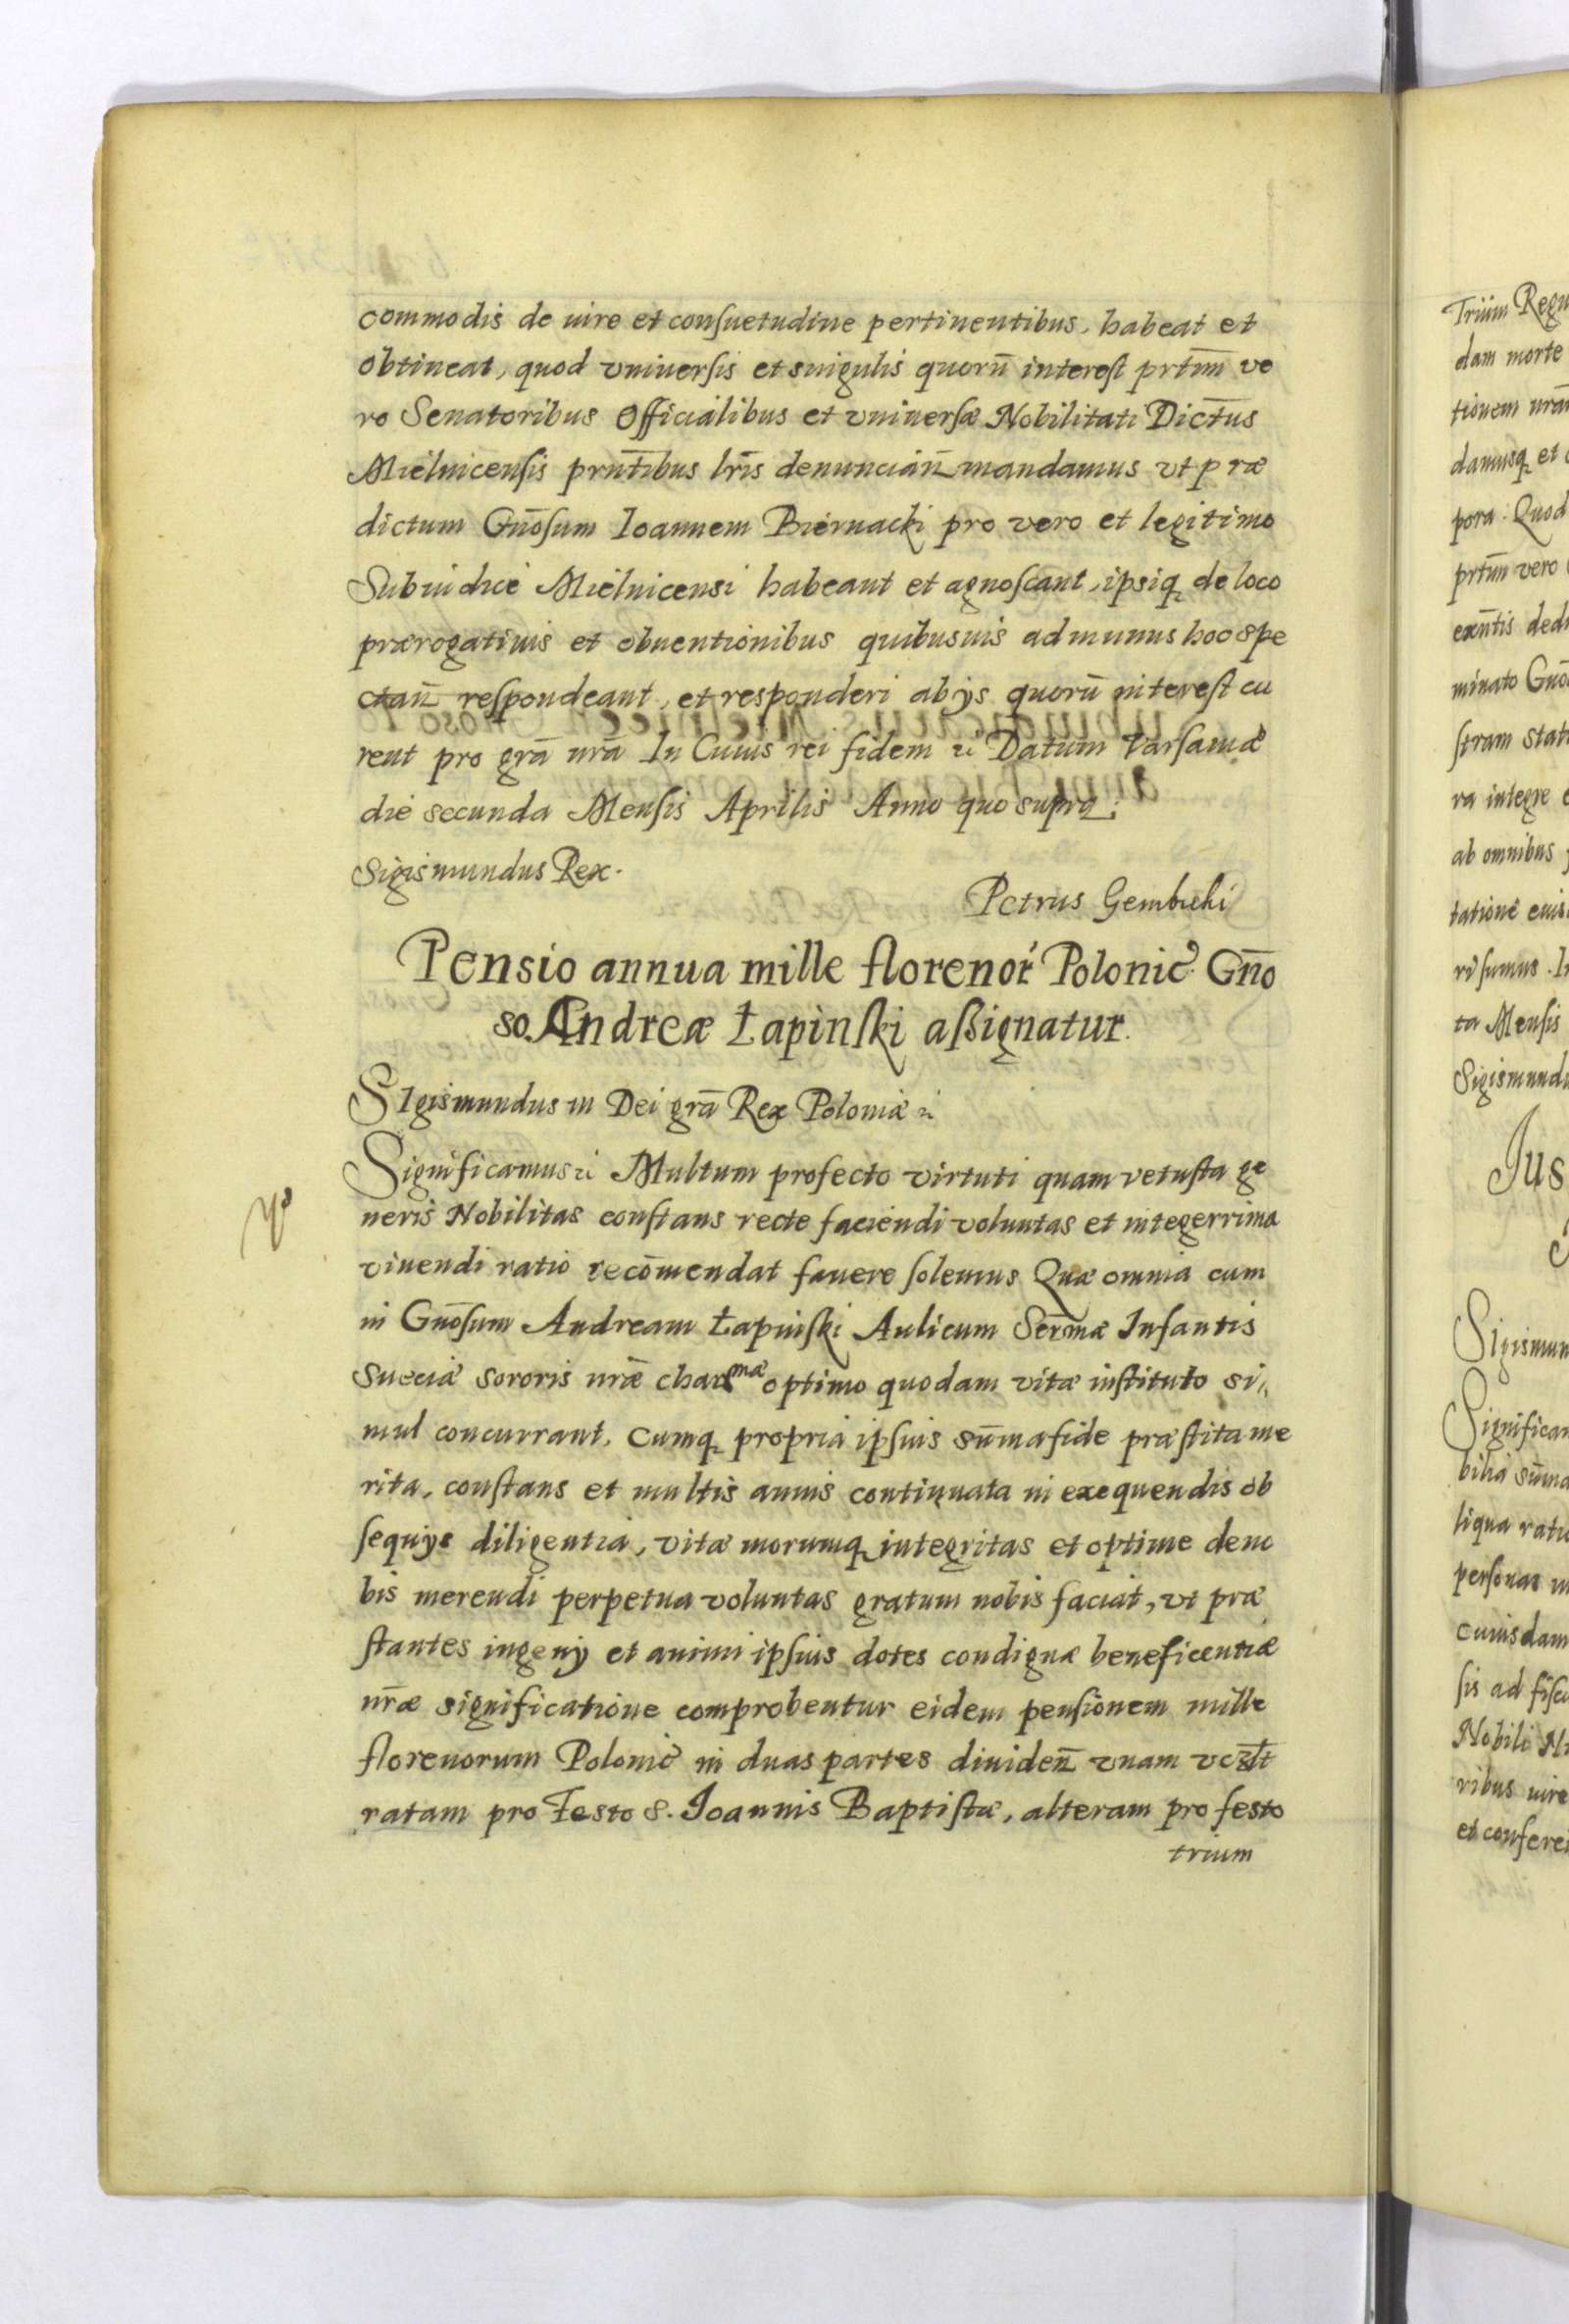 commodis de iure et consuetudine pertinentibus, habeat et
obtineat, quod vniuersis et singulis quorū interest prtīm ve
ro Senatoribus Officialibus et vniuersæ Nobilitati Dictus
Mielnicensis prntibus lris denuncian̄ mandamus vt præ
dictum Gnōsum Ioannem Biernacki pro vero et legitimo
Subiudice Mielnicensi habeant et agnoscant, ipsiq de loco
prærogatiuis et obuentionibus quibusuis ad munus hoc spe
ctan̄ respondeant, et responderi ab ijs quorū interest cu
rent pro grā nrā In Cuius rei fidem etc Datum Varsauiæ
die secunda Mensis Aprilis Anno quo supra.
Sigismundus Rex.
Petrus Gembicki
Pensio annua mille florenor Polonic Gnō
so Andreæ Łapinski assignatur.
SIgismundus III Dei grā Rex Poloniæ etc
Significamus etc Multum profecto virtuti quam vetusta ge
neris Nobilitas constans recte faciendi voluntas et integerrima
viuendi ratio recōmendat fauere solemus Quæ omnia cum
in Gnōsum Andream Łapinski Aulicum Sermæ Infantis
Sueciæ sororis nræ charismæ optimo quodam vitæ instituto si„
mul concurrant, cumq propria ipsius sūma fide præstita me
rita, constans et multis annis continuata in exequendis ob
sequijs diligentia, vitæ morumq integritas et optime de no
bis merendi perpetua voluntas gratum nobis faciat, vt præ
stantes ingenij et animi ipsius dotes condignæ beneficentiæ
nræ significatione comprobentur eidem pensionem mille
florenorum Polonic in duas partes diuiden̄ vnam vczlt
ratam pro Festo S. Joannis Baptistæ, alteram pro festo
trium
Trium Regu
dam morte
tionem nrā
damusq et
pora: Quod
prtīm vero
exntis dedi
minato Gnō
stram stat
ra integre
ab omnibus
tationē eius
ri sumus. In
ta Mensis
Sigismundu
Jus
Sigismun
Significam
bilia sūma
liqua ratio
personas
cuiusdam
sis ad fisc
Nobili
ribus iure
et confere